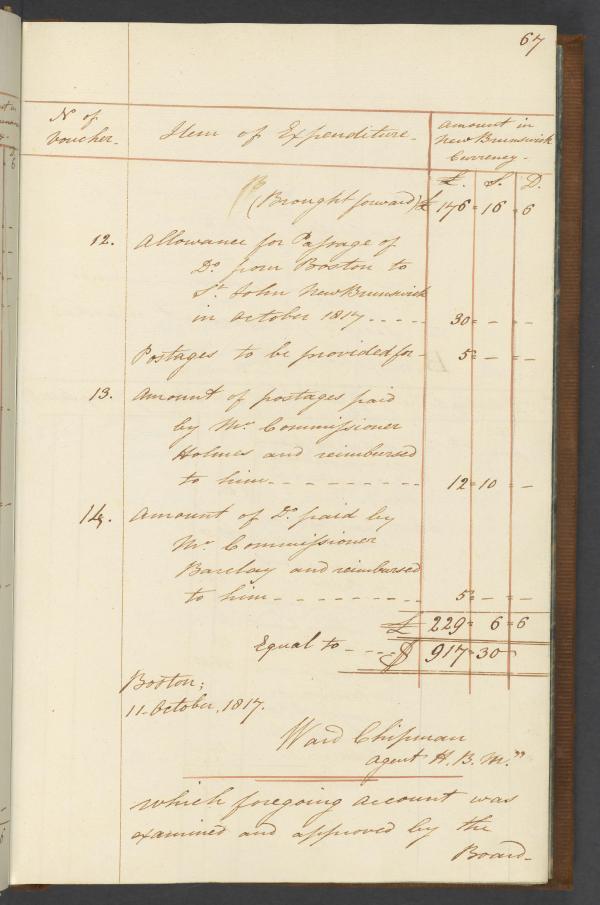 67
No of Voucher. Item of Expenditure. Amount in New Brunswick Currency.
£. S. D.
(Brought forward) £ 176 = 16 = 6
12. Allowance for Passage of
Do from Boston to
St. John New Brunswick
in October 1817 - - - - 30 = - = -
Postages to be provided for - 5 = - = -
13. Amount of postages paid
by Mr Commissioner
Holmes and reimbursed
to him - - - - - - - - - 12 = 10 = -
14. Amount of Do paid by
Mr Commissioner
Barclay and reimbursed
to him - - - - - - - - - 5 = - = -
£ 229 = 6 = 6
Equal to - - - - $ 917 = 30
Boston;
11 October, 1817.
Ward Chipman
agent H. B. M."
which foregoing account was
examined and approved by the
Board -